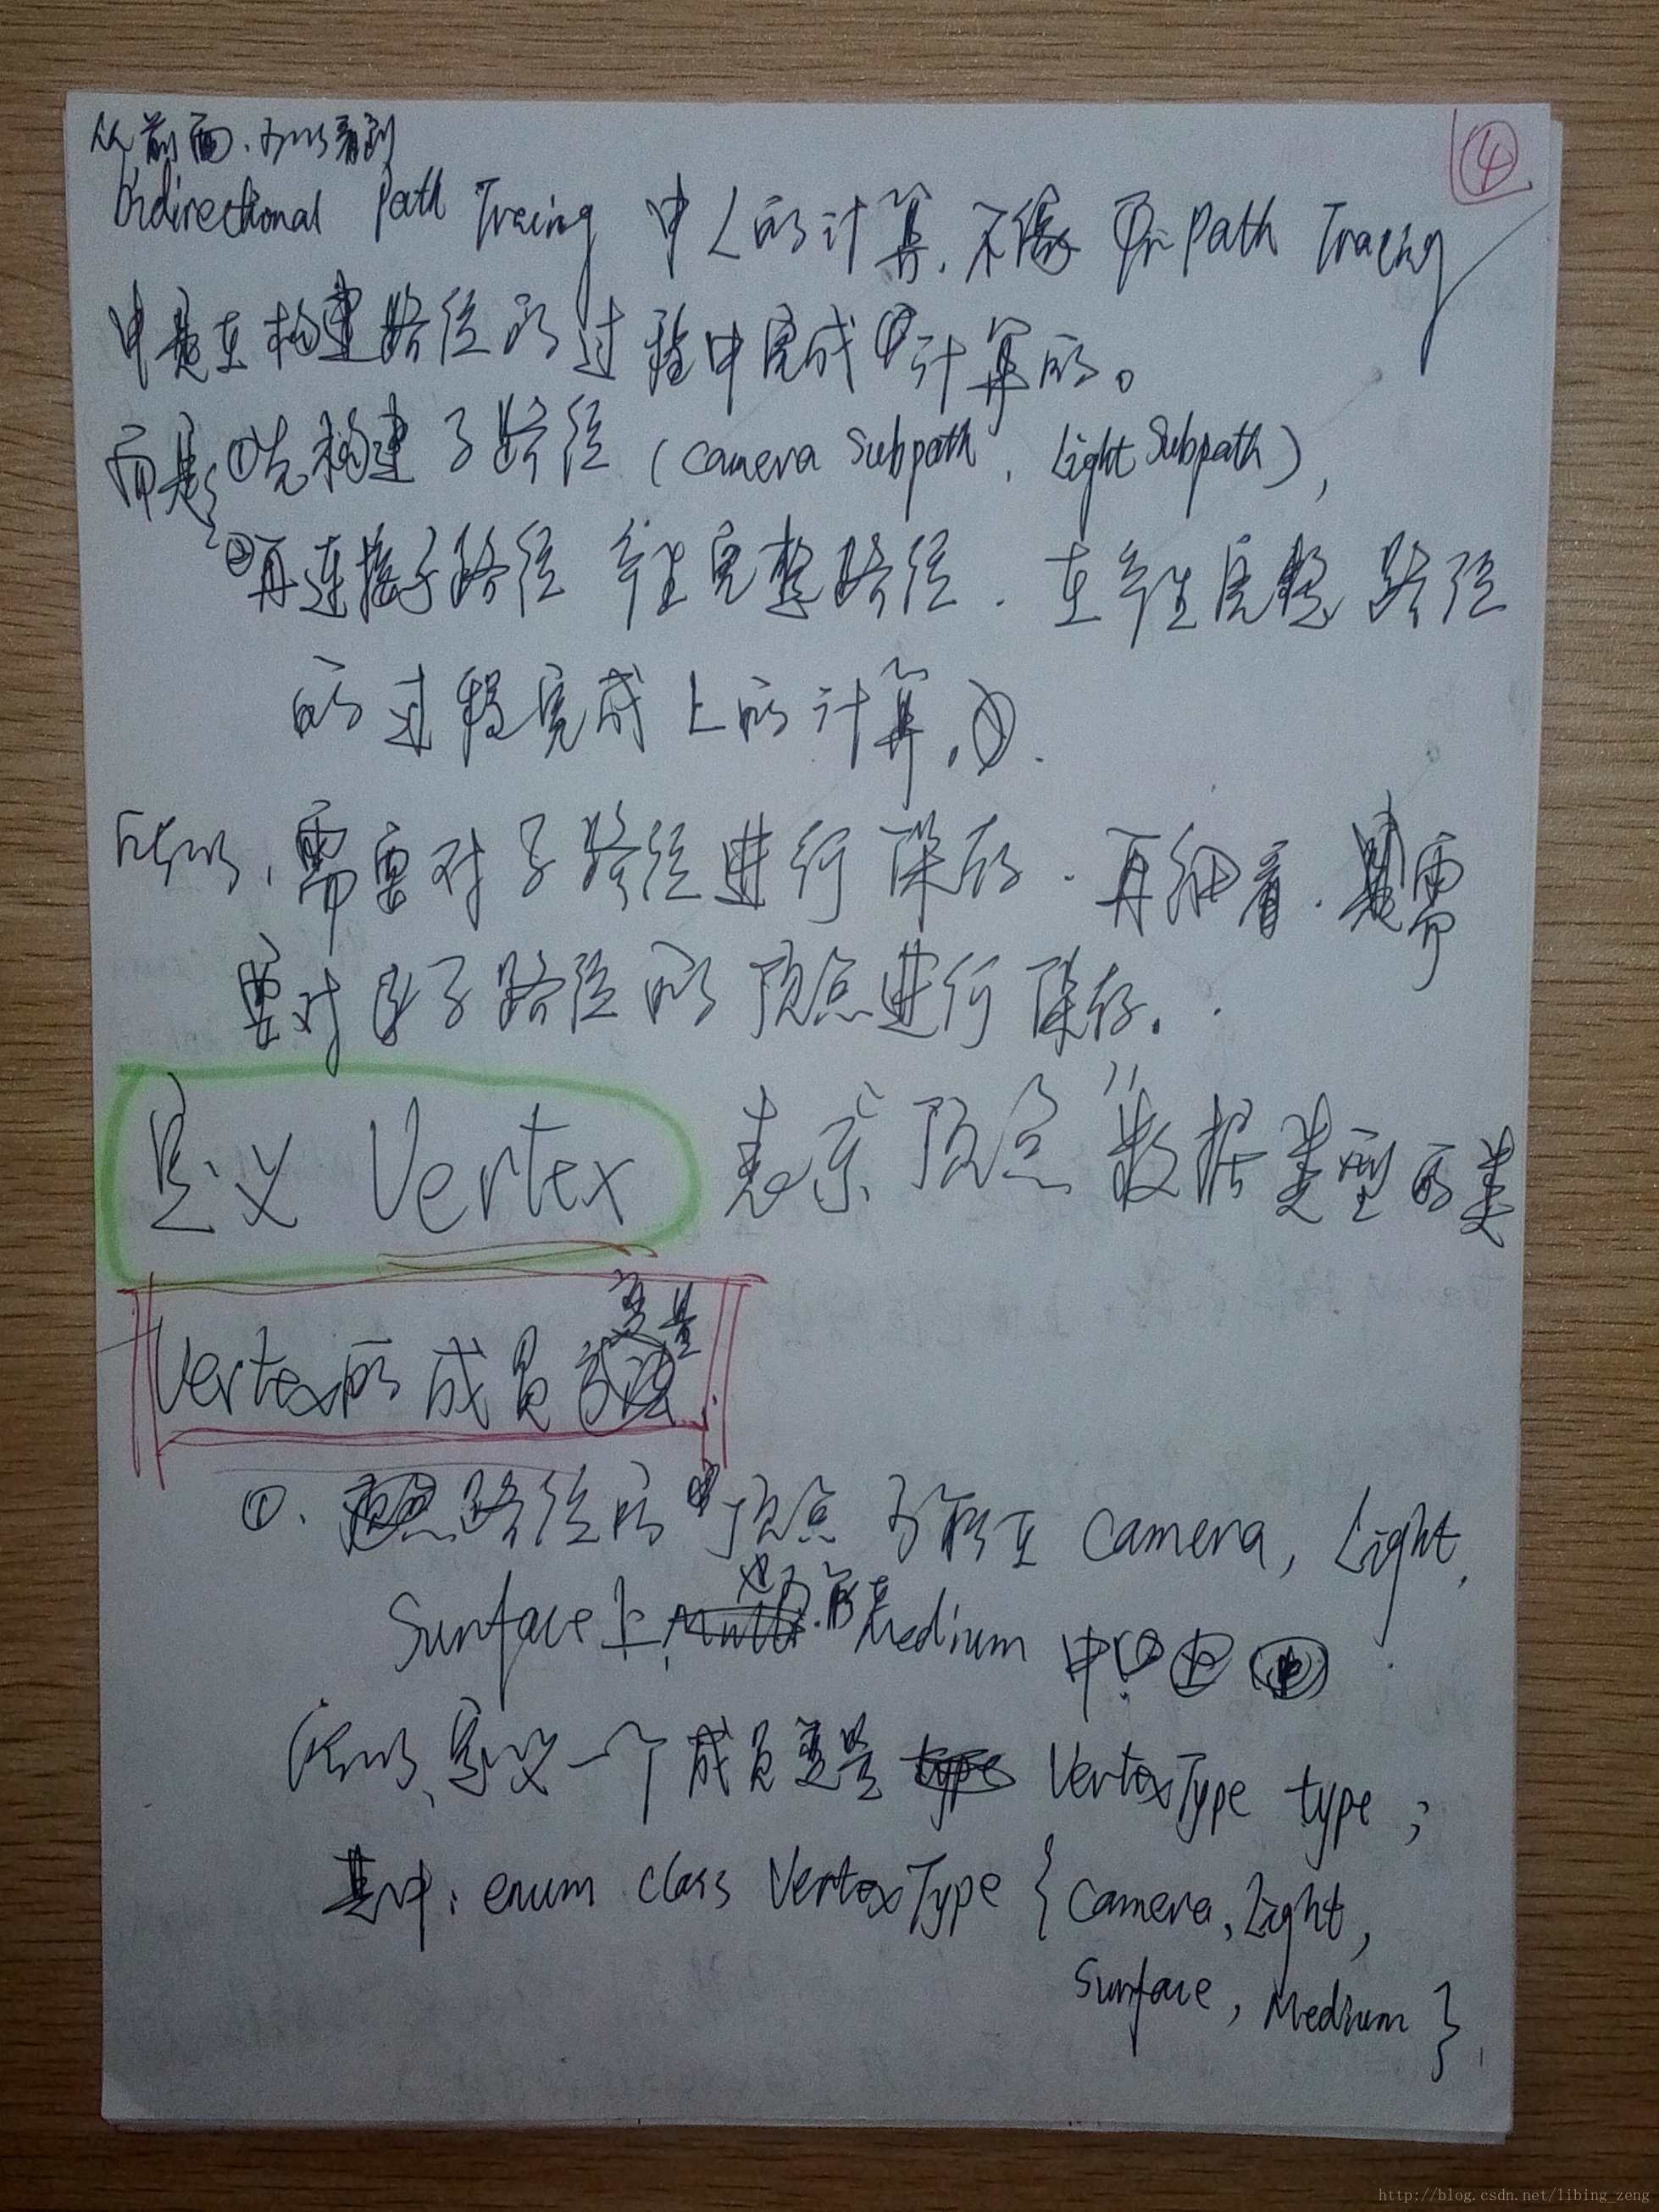 ④
从前面,可以看到
Bidirectional Path Tracing 中L的计算,不像 Path Tracing
中是在构建路径的过程中完成计算的。
而是①先构建子路径(Camera Subpath, Light Subpath),
②再连接子路径产生完整路径. 在产生完整路径
的过程完成L的计算.
所以,需要对子路径进行保存.再细看.是需
要对子路径的顶点进行保存.
定义 Vertex 表示“顶点”数据类型的类
Vertex的成员变量
①. 路径的顶点可能在 Camera, Light,
Surface上,也可能在Medium中.
所以,定义一个成员变量 VertexType type;
其中: enum class VertexType { Camera, Light,
Surface, Medium }
http://blog.csdn.net/libing_zeng